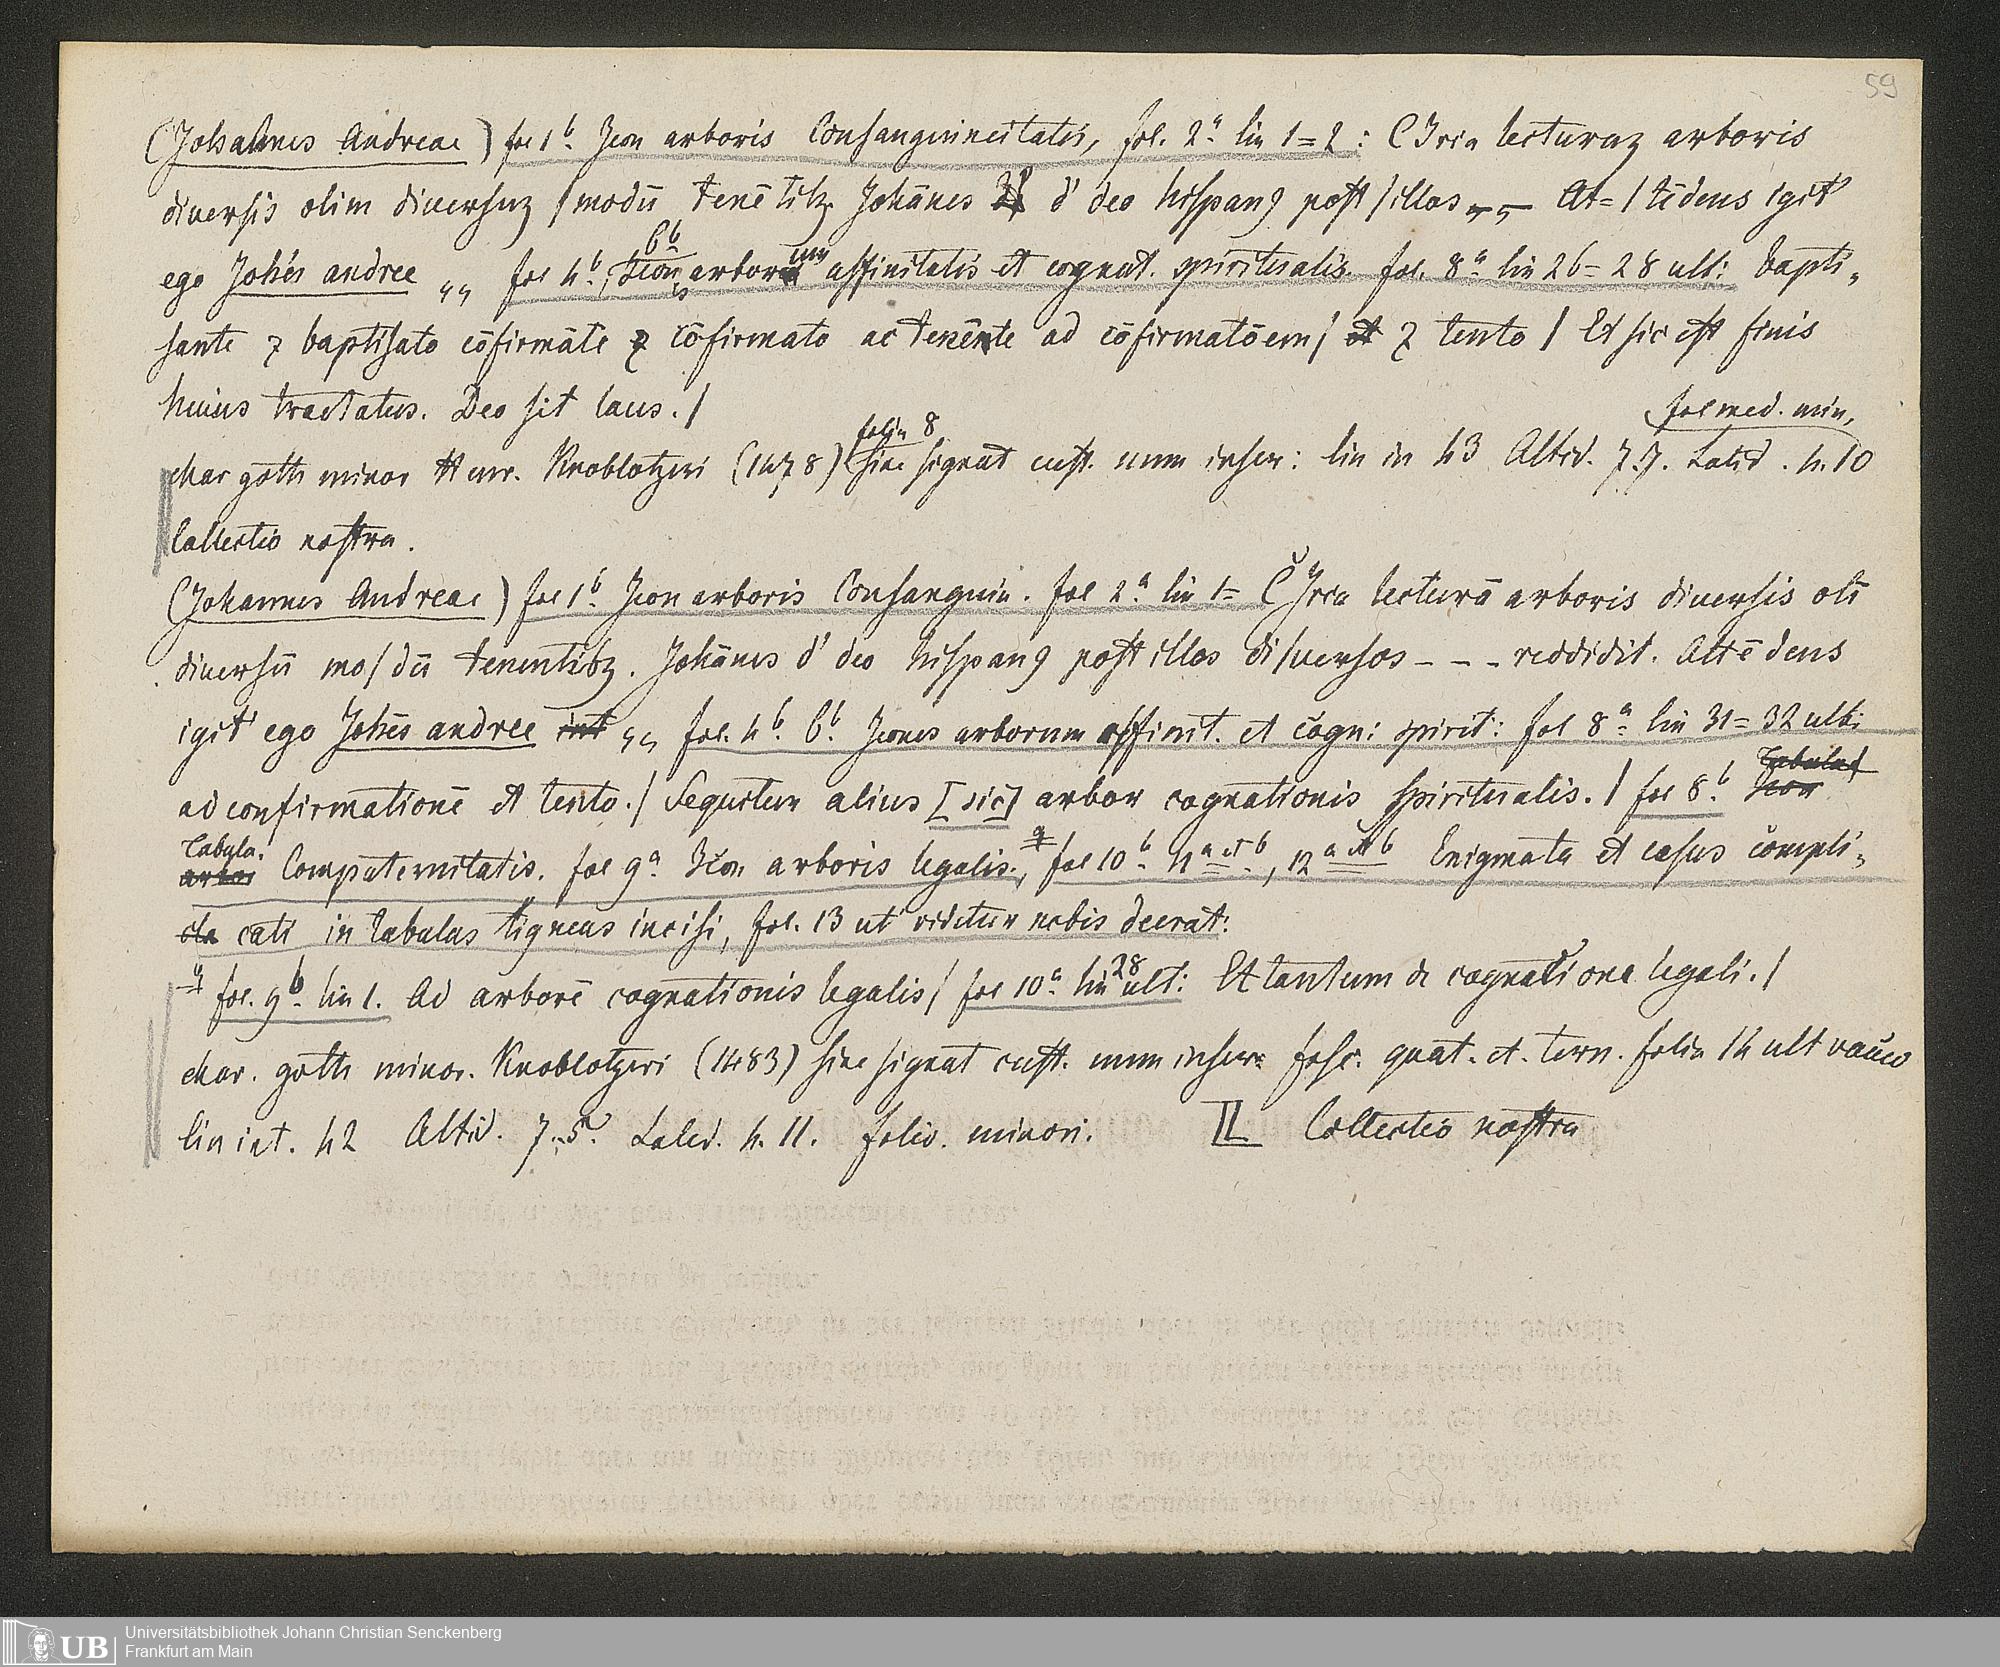 59
(Johannes Andreae) fol 1b. Icon arboris Consanguineitatis, fol. 2a lin 1=2: CIrca lecturaz arboris
diuersis olim diuersuz /modū tenētibz Johānes d' deo hispanꝯ post /illos „ „ At=/tēdens igit'
ego Johēs andree „„ fol 4b., 6b Icones arborum affinitatis et cognat. spiritualis. fol. 8a lin 26=28 ult: bapti„
sante ⁊ baptisato cōfirmāte ⁊ cōfirmato ac tenēte ad cōfirmatōem / ⁊ tento / Et sic est finis
huius tractatus. Deo sit laus. /
fol med. min,
char goth minor Henr. Knoblotzeri (1478) folia 8 sine signat cust. num inser: lin in 43 Altid. 7.7. Latid. 4.10
Collectio nostra.
(Johannes Andreae) fol 1b. Icon arboris Consanguin. fol 2a. lin 1= CIrca lecturā arboris diuersis oli
diuersū mo/dū tenentibz. Johānes d' deo hispanꝯ post illos di/uersos - - - reddidit. Attēdens
igit' ego Johēs andree „„ fol. 4b. 6b. Icones arborum affinit. et cogn: spirit: fol 8a lin 31=32 ult:
ad confirmationē et tento. / Sequitur alius [sic] arbor cognationis spiritualis. / fol 8b. Tabula Icon
Tabula. arbor Compaternitatis. fol 9a. Icon arboris legalis., fol 10b. 11a et b, 12a et b Enigmata et casus compli„
cati in tabulas ligneas incisi, fol. 13 ut videtur nobis deerat:
fol. 9b. lin 1. Ad arborē cognationis legalis / fol 10a. lin 28 ult: Et tantum de cognatione legali. /
char. goth minor. Knoblotzeri (1483) sine signat cust. num inser: fasc. quat. et. tern. folia 14 ult vacuo
lin int. 42 Altid. 7.5. Latid. 4.11. folio. minori. II Collectio nostra
UB
Universitätsbibliothek Johann Christian Senckenberg
Frankfurt am Main